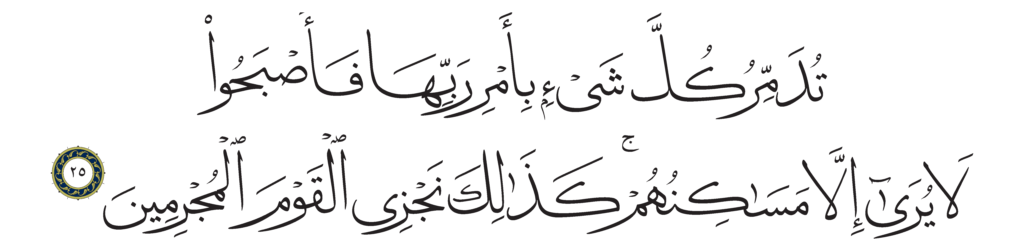 تُدَمِّرُ كُلَّ شَىْءٍۭ بِأَمْرِ رَبِّهَا فَأَصْبَحُوا۟
لَا يُرَىٰٓ إِلَّا مَسَـٰكِنُهُمْ ۚ كَذَٰلِكَ نَجْزِى ٱلْقَوْمَ ٱلْمُجْرِمِينَ ٢٥